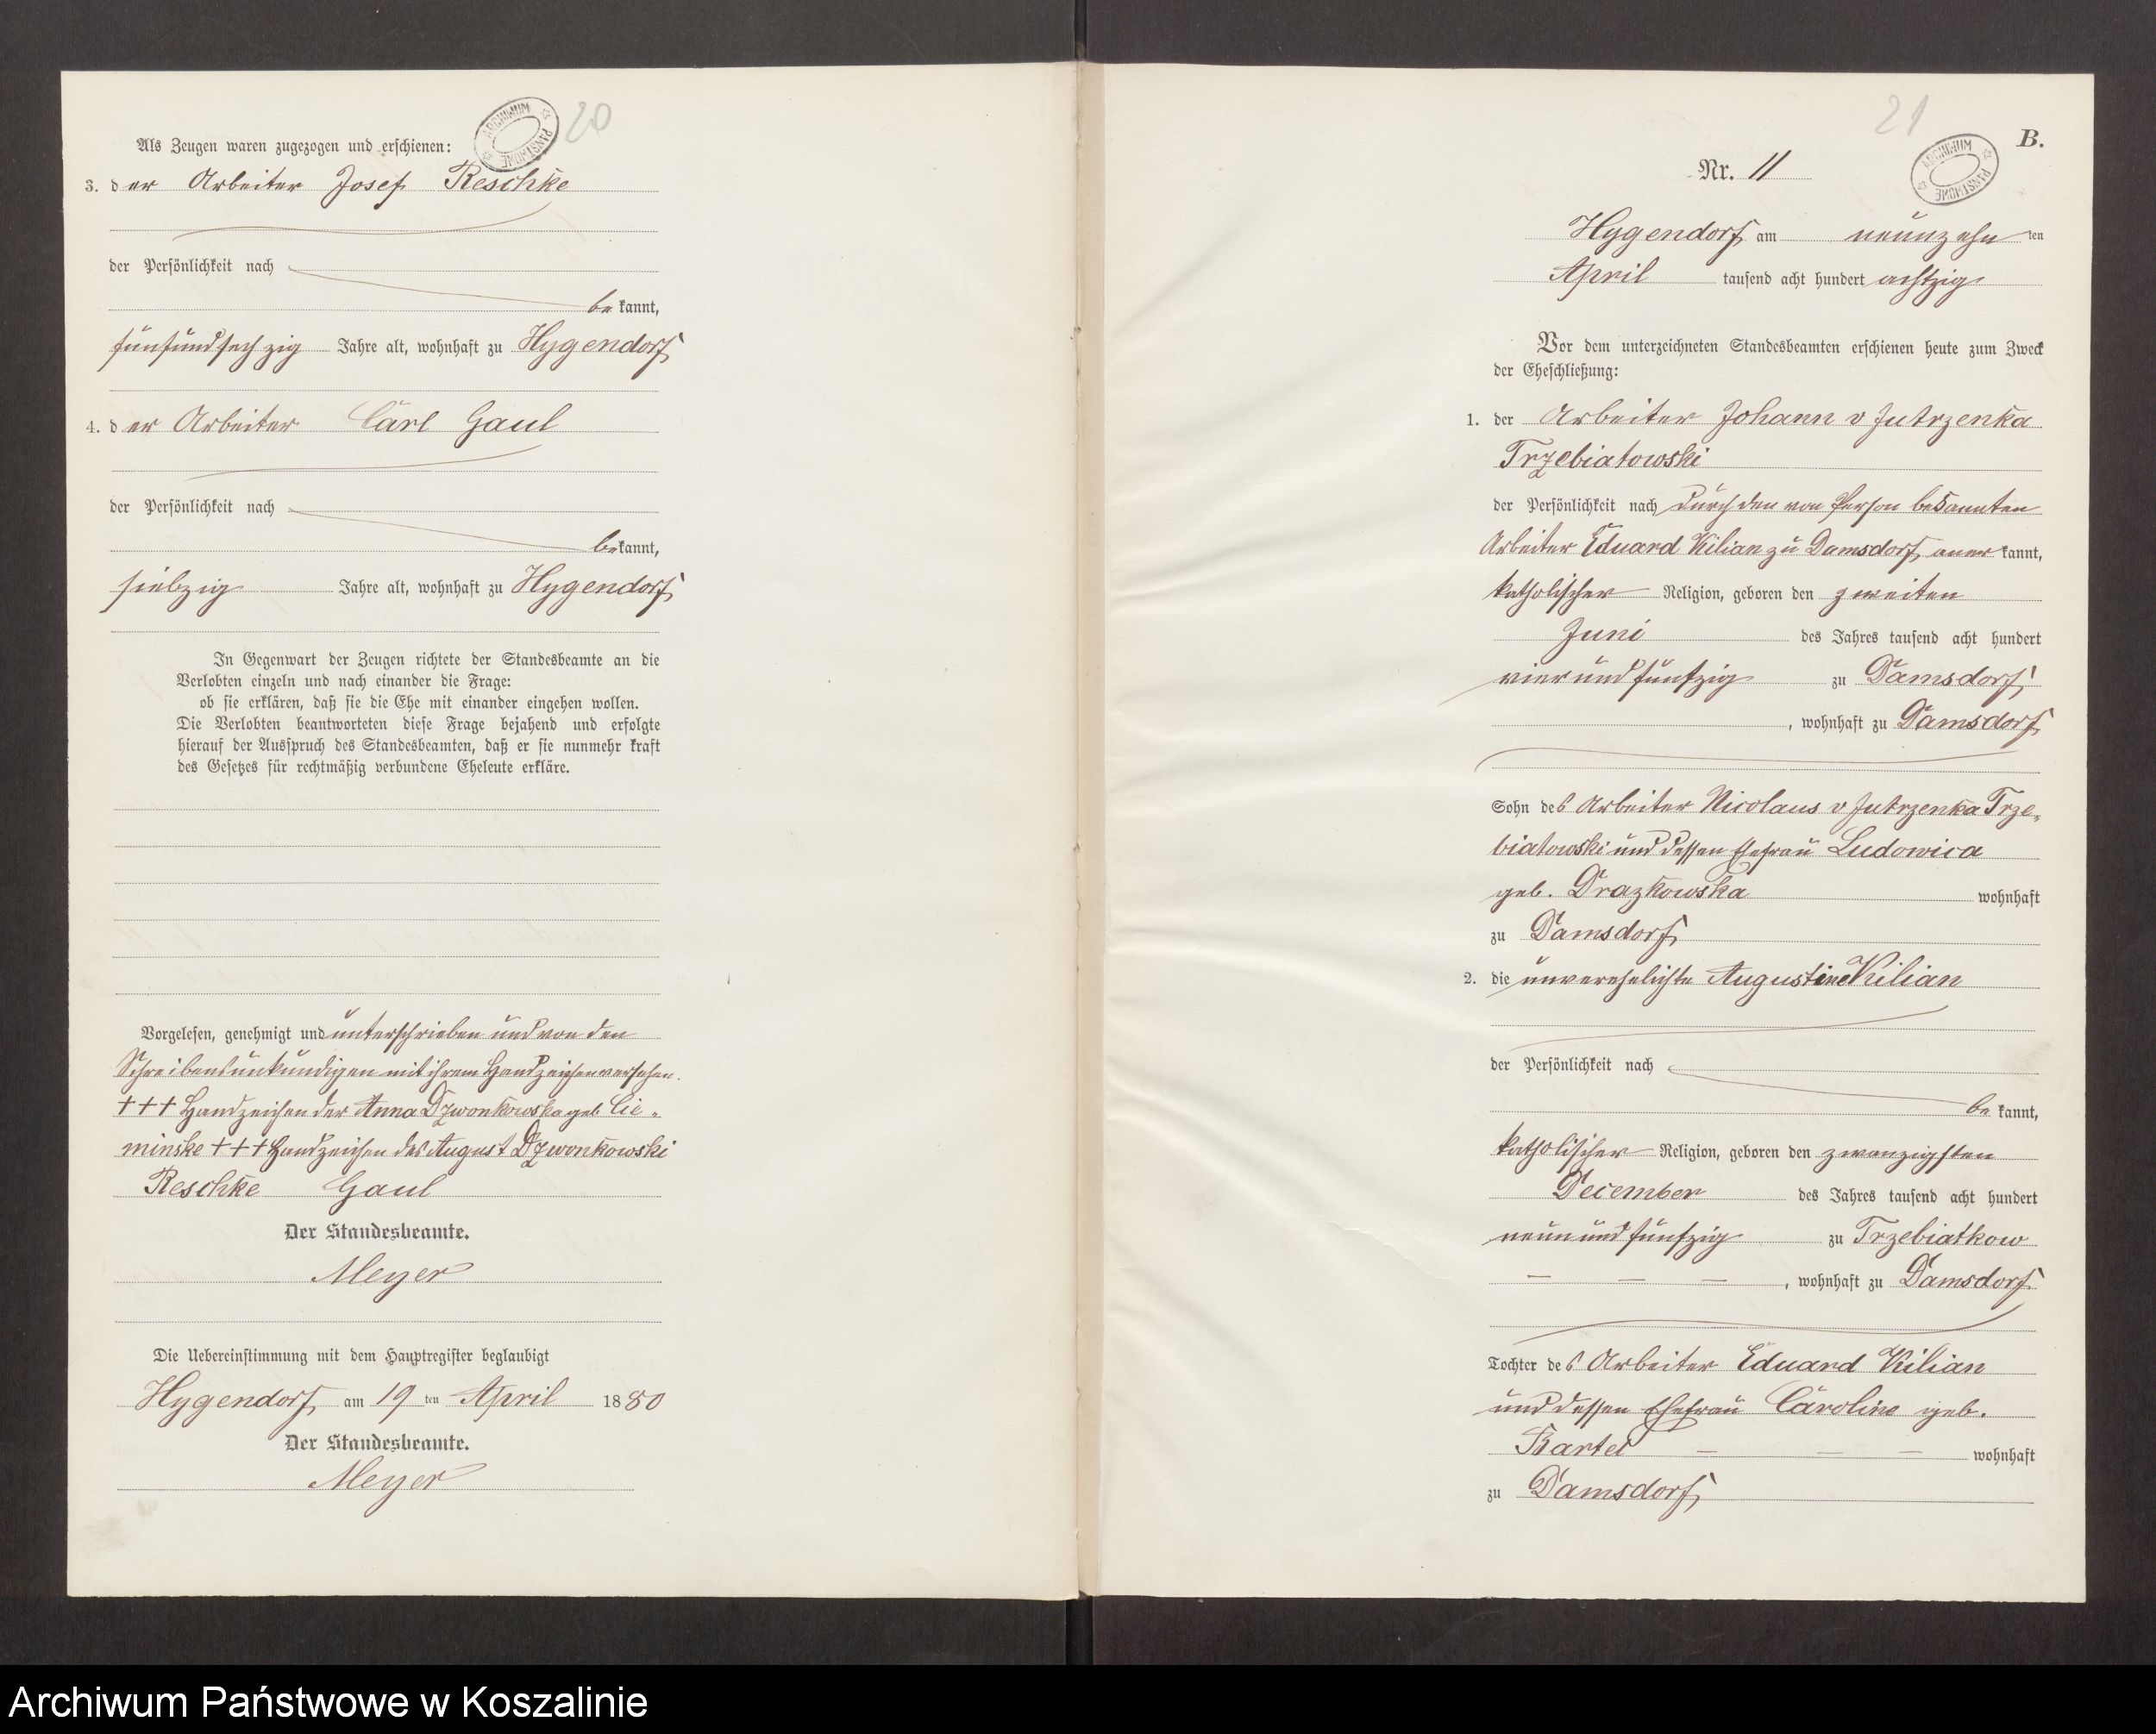 20
ARCHIWUM PAŃSTWOWE
Als Zeugen waren zugezogen und erschienen:
3. der Arbeiter Josef Reschke
der Persönlichkeit nach
bekannt,
fünfundsechzig Jahre alt, wohnhaft zu Hygendorf
4. der Arbeiter Carl Gaul
der Persönlichkeit nach
bekannt,
siebzig Jahre alt, wohnhaft zu Hygendorf
In Gegenwart der Zeugen richtete der Standesbeamte an die
Verlobten einzeln und nach einander die Frage:
ob sie erklären, daß sie die Ehe mit einander eingehen wollen.
Die Verlobten beantworteten diese Frage bejahend und erfolgte
hierauf der Ausspruch des Standesbeamten, daß er sie nunmehr kraft
des Gesetzes für rechtmäßig verbundene Eheleute erkläre.
Vorgelesen, genehmigt und unterschrieben und von den
Schreibensunkundigen mit ihrem Handzeichen versehen.
+++ Handzeichen der Anna Dzwonkowska geb. Cie-
minske +++ Handzeichen des August Dzwonkowski
Reschke Gaul
Der Standesbeamte.
Meyer
Die Uebereinstimmung mit dem Hauptregister beglaubigt
Hygendorf am 19 ten April 1880
Der Standesbeamte.
Meyer
21
B.
ARCHIWUM PAŃSTWOWE
Nr. 11
Hygendorf am neunzehn ten
April tausend acht hundert achtzig
Vor dem unterzeichneten Standesbeamten erschienen heute zum Zweck
der Eheschließung:
1. der Arbeiter Johann v Jutrzenka
Trzebiatowski
der Persönlichkeit nach durch den von Person bekannten
Arbeiter Eduard Kilian zu Damsdorf anerkannt,
katholischer Religion, geboren den zweiten
Juni des Jahres tausend acht hundert
vierundfünfzig zu Damsdorf
, wohnhaft zu Damsdorf
Sohn des Arbeiter Nicolaus v Jutrzenka Trze-
biatowski und dessen Ehefrau Ludowica
geb. Drazkowska wohnhaft
zu Damsdorf
2. die unverehelichte Augustine Kilian
der Persönlichkeit nach
bekannt,
katholischer Religion, geboren den zwanzigsten
December des Jahres tausend acht hundert
neunundfünfzig zu Trzebiatkow
— — — , wohnhaft zu Damsdorf
Tochter des Arbeiter Eduard Kilian
und dessen Ehefrau Caroline geb.
Bartel — — — wohnhaft
zu Damsdorf
Archiwum Państwowe w Koszalinie